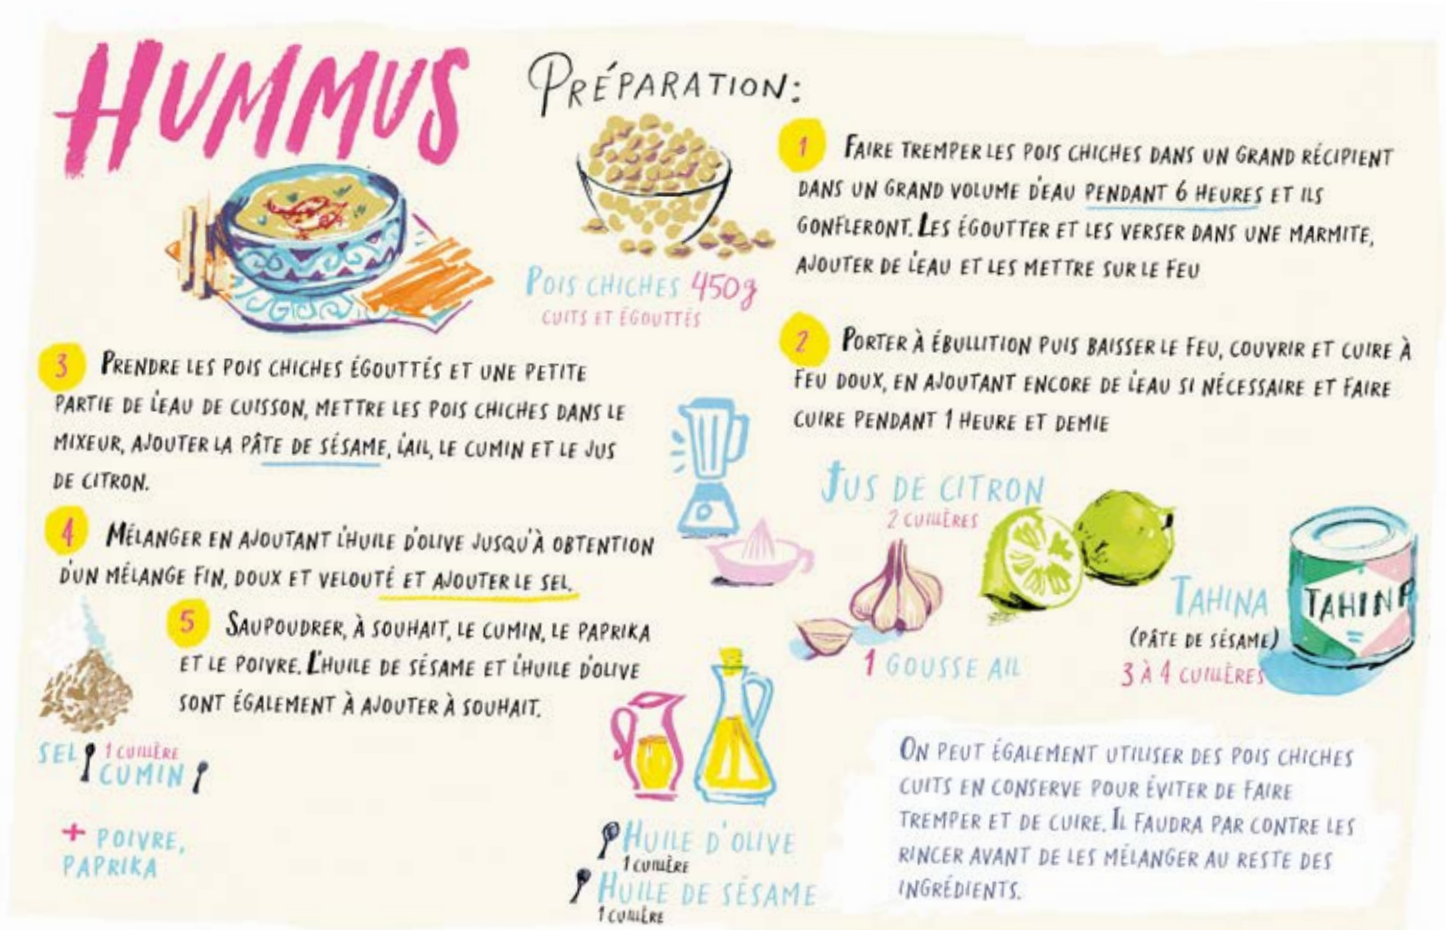 HUMMUS
PRÉPARATION:
POIS CHICHES 450g
CUITS ET ÉGOUTTÉS
1 FAIRE TREMPER LES POIS CHICHES DANS UN GRAND RÉCIPIENT
DANS UN GRAND VOLUME D'EAU PENDANT 6 HEURES ET ILS
GONFLERONT. LES ÉGOUTTER ET LES VERSER DANS UNE MARMITE,
AJOUTER DE L'EAU ET LES METTRE SUR LE FEU
2 PORTER À ÉBULLITION PUIS BAISSER LE FEU, COUVRIR ET CUIRE À
FEU DOUX, EN AJOUTANT ENCORE DE L'EAU SI NÉCESSAIRE ET FAIRE
CUIRE PENDANT 1 HEURE ET DEMIE
3 PRENDRE LES POIS CHICHES ÉGOUTTÉS ET UNE PETITE
PARTIE DE L'EAU DE CUISSON, METTRE LES POIS CHICHES DANS LE
MIXEUR, AJOUTER LA PÂTE DE SÉSAME, L'AIL, LE CUMIN ET LE JUS
DE CITRON.
4 MÉLANGER EN AJOUTANT L'HUILE D'OLIVE JUSQU'À OBTENTION
D'UN MÉLANGE FIN, DOUX ET VELOUTÉ ET AJOUTER LE SEL.
5 SAUPOUDRER, À SOUHAIT, LE CUMIN, LE PAPRIKA
ET LE POIVRE. L'HUILE DE SÉSAME ET L'HUILE D'OLIVE
SONT ÉGALEMENT À AJOUTER À SOUHAIT.
JUS DE CITRON
2 CUILLÈRES
1 GOUSSE AIL
TAHINA
(PÂTE DE SÉSAME)
3 À 4 CUILLÈRES
TAHINA
SEL 1 CUILLÈRE
CUMIN
+ POIVRE,
PAPRIKA
HUILE D'OLIVE
1 CUILLÈRE
HUILE DE SÉSAME
1 CUILLÈRE
ON PEUT ÉGALEMENT UTILISER DES POIS CHICHES
CUITS EN CONSERVE POUR ÉVITER DE FAIRE
TREMPER ET DE CUIRE. IL FAUDRA PAR CONTRE LES
RINCER AVANT DE LES MÉLANGER AU RESTE DES
INGRÉDIENTS.